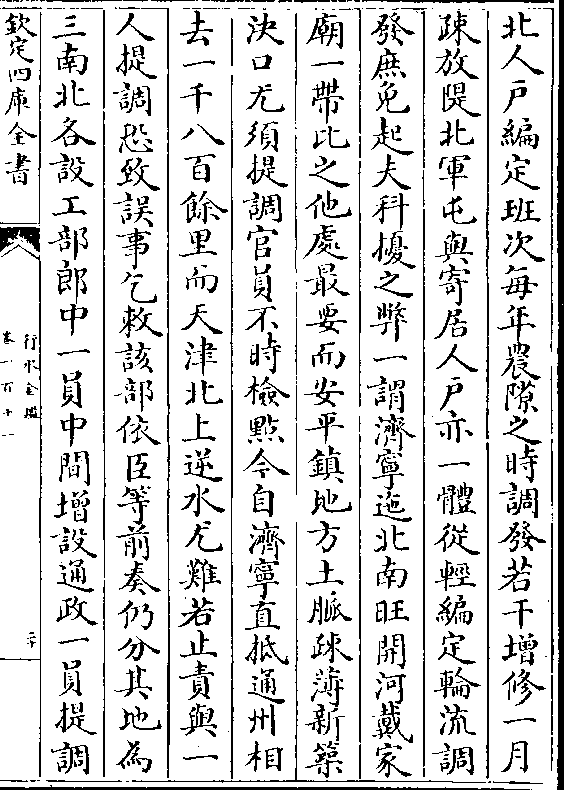 北人戶編定班次每年農隙之時調發若干增修一月
疎放隄北軍屯與寄居人戶亦一體從輕編定輪流調
發庶免起夫科擾之弊一謂濟寧迤北南旺開河戴家
廟一帶比之他處最要而安平鎮地方土脈疎薄新築
決口尤須提調官員不時檢點今自濟寧直抵通州相
去一千八百餘里而天津北上逆水尤難若止責與一
人提調恐致誤事乞敕該部依臣等前奏仍分其地為
三南北各設工部郎中一員中間增設通政一員提調
欽定四庫全書
行水金鑑
卷一百十一
二十